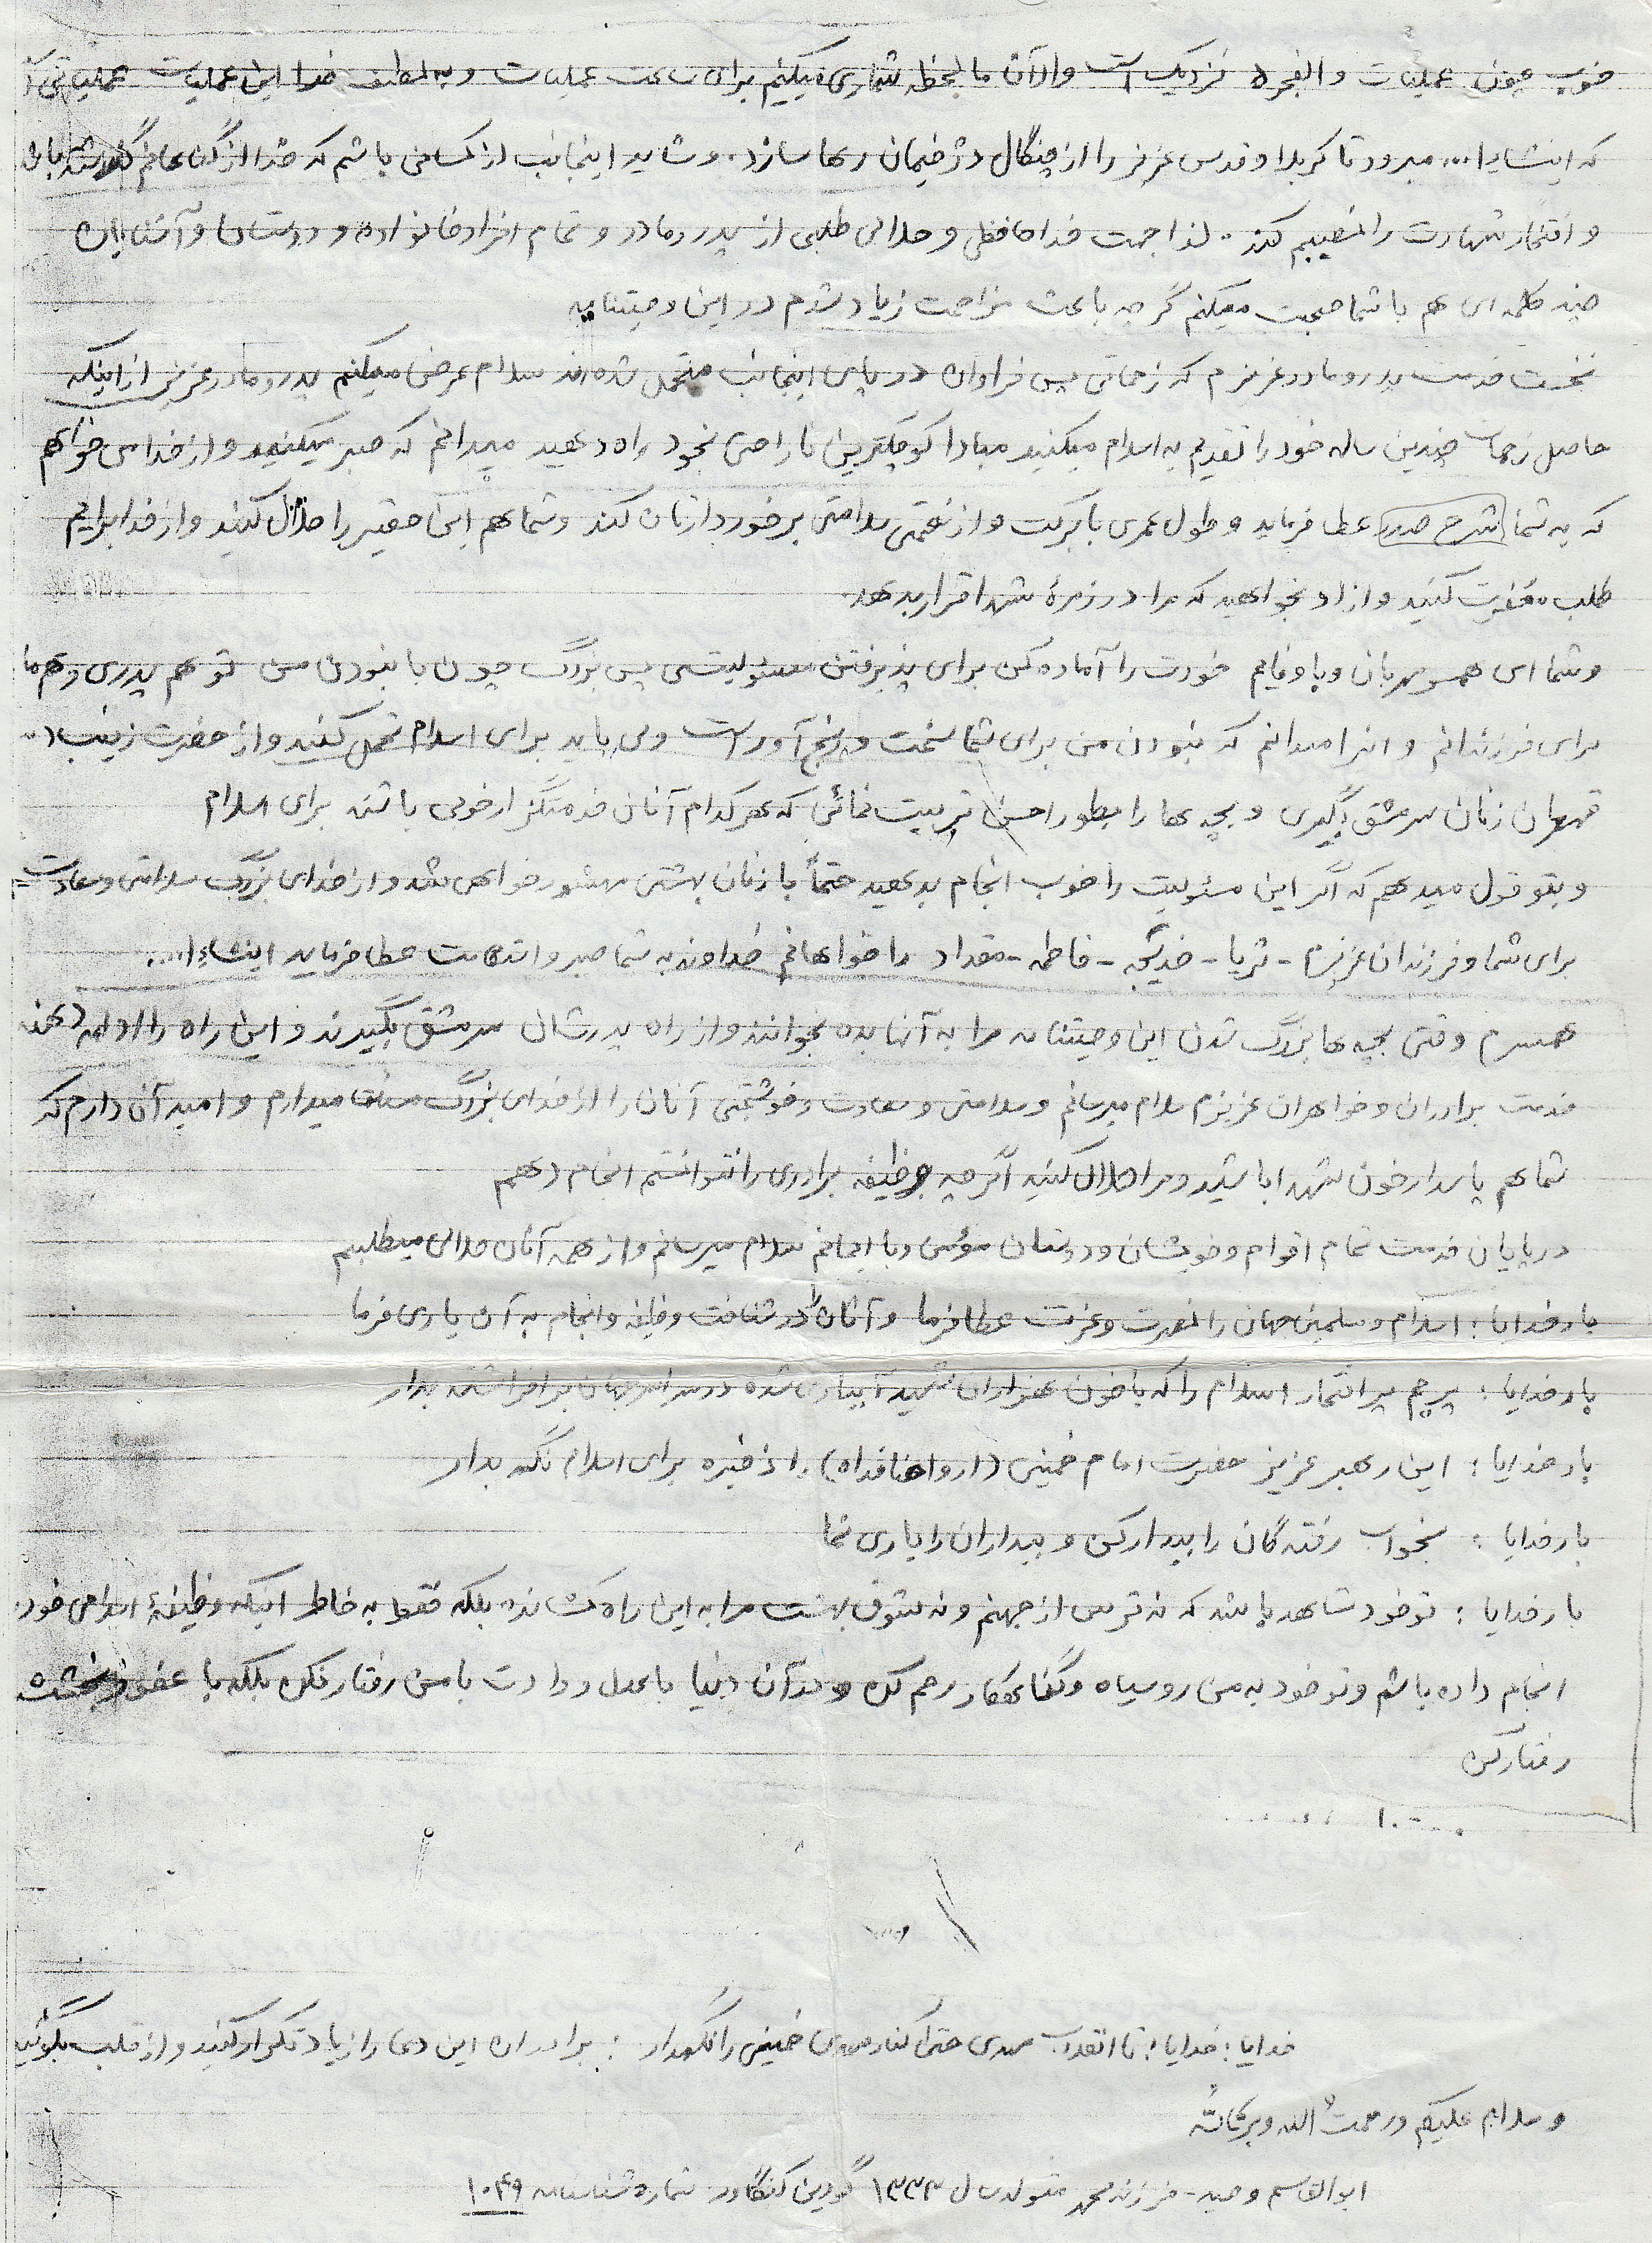 خوب چون عملیات والفجر ۵ نزدیک است و الآن ما لحظه شماری میکنیم برای ساعت عملیات و به لطف خدا این عملیات عملیاتی
که انشاءا... میرود تا کربلا و قدس عزیز را از چنگال دژخیمان رها سازد. و شاید اینجانب از کسانی باشم که خدا از گناهانم گذشته باشد
و افتخار شهادت را نصیبم کند. لذا جهت خداحافظی و حلالی طلبی از پدر و مادر و تمام افراد خانواده و دوستان و آشنایان
چند کلمه ای هم با شما صحبت میکنم گرچه باعث مزاحمت زیاد شدم در این وصیتنامه
نخست خدمت پدر و مادر عزیزم که زحماتی بس فراوان در پای اینجانب متحمل شده اند سلام عرض میکنم پدر و مادر عزیز از اینکه
حاصل زحمات چندین ساله خود را تقدیم به اسلام میکنید مبادا کوچکترین ناراحتی بخود راه دهید میدانم که صبر میکنید و از خدا می خواهم
که به شما شرح صدر عطا فرماید و طول عمری با برکت و از نعمتی سلامتی برخوردارتان کند و شما هم این حقیر را حلال کنید و از خدا برایم
طلب مغفرت کنید و از او بخواهید که مرا در زمرهٔ شهدا قرار بدهد.
و شما ای همسر مهربان و با وفایم خودت را آماده کن برای پذیرفتن مسئولیتی بس بزرگ چون با نبودن من تو هم پدری و هم ما
برای فرزندانم و اینرا میدانم که نبودن من برای شما سخت و رنج آور است ولی باید برای اسلام تحمل کنید و از حضرت زینب (
قهرمان زنان سرمشق بگیری و بچه ها را بطور احسن تربیت نمائی که هر کدام آنان خدمتگزار خوبی باشند برای اسلام
و بتو قول میدهم که اگر این مسئولیت را خوب انجام بدهید حتماً با زنان بهشتی محشور خواهی شد و از خدای بزرگ سلامتی و سعادت
برای شما و فرزندان عزیزم - ثریا - خدیجه - فاطمه - مقداد را خواهانم خداوند به شما صبر و استقامت عطا فرماید انشاءا....
همسرم وقتی بچه ها بزرگ شدن این وصیتنامه مرا به آنها بده بخوانند و از راه پدرشان سرمشق بگیرند و این راه را ادامه دهند
خدمت برادران و خواهران عزیزم سلام میرسانم و سلامتی و سعادت و خوشبختی آنان را از خدای بزرگ مسئلت میدارم و امید آن دارم که
شما هم پاسدار خون شهدا باشید و مرا حلال کنید اگر چه وظیفه برادری را نتوانستم انجام دهم
در پایان خدمت تمام اقوام و خویشان و دوستان مؤمن و با ایمانم سلام میرسانم و از همه آنان حلالی میطلبم
بار خدایا : اسلام و مسلمین جهان را نصرت و عزت عطا فرما و آنان را در شناخت وظیفه و انجام به آن یاری فرما
بار خدایا : پرچم پر افتخار اسلام را که با خون هزاران شهید آبیاری شده در سراسر جهان برافراشته بدار
بار خدایا : این رهبر عزیز حضرت امام خمینی (ارواحنا فداه) را ذخیره برای اسلام نگه بدار
بار خدایا : بخواب رفته گان را بیدار کن و بیداران را یاری نما
بار خدایا : تو خود شاهد باشد که نه ترس از جهنم و نه شوق بهشت مرا به این راه کشانده بلکه فقط به خاطر اینکه وظیفهٔ اسلامی خود
انجام داده باشم و تو خود به من رو سیاه و گناهکار رحم کن و در آن دنیا با عدل و دادت با من رفتار نکن بلکه با عفو و بخششت
رفتار کن
خدایا : خدایا : تا انقلاب مهدی حتی کنار مهدی خمینی را نگهدار : برادران این دعا را زیاد تکرار کنید و از قلب بگوئید
و سلام علیکم و رحمت الله و برکاته
ابوالقاسم وحید - فرزند محمد متولد سال ۱۳۳۳ گودین کنگاور شماره شناسنامه ۱۰۴۹